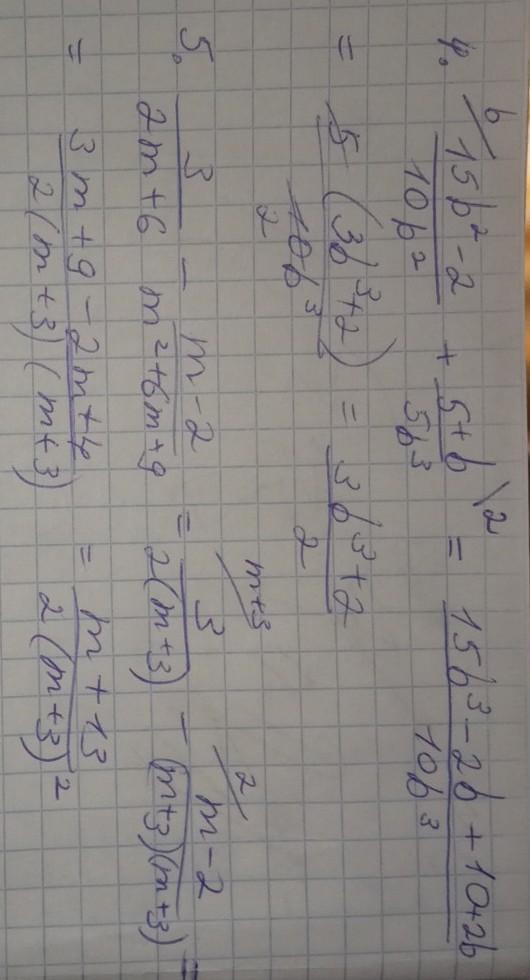 4. b/ (15b² - 2)/(10b²) + (5+b)/(5b³) \2 = (15b³ - 2b + 10 + 2b)/(10b³)
= (5(3b³+2))/(10b³) 2 = (3b³+2)/2
5. 3/(2m+6) - (m-2)/(m²+6m+9) = m+3/ 3/(2(m+3)) - 2/ (m-2)/((m+3)(m+3)) =
= (3m+9-2m+4)/(2(m+3)(m+3)) = (m+13)/(2(m+3)²)